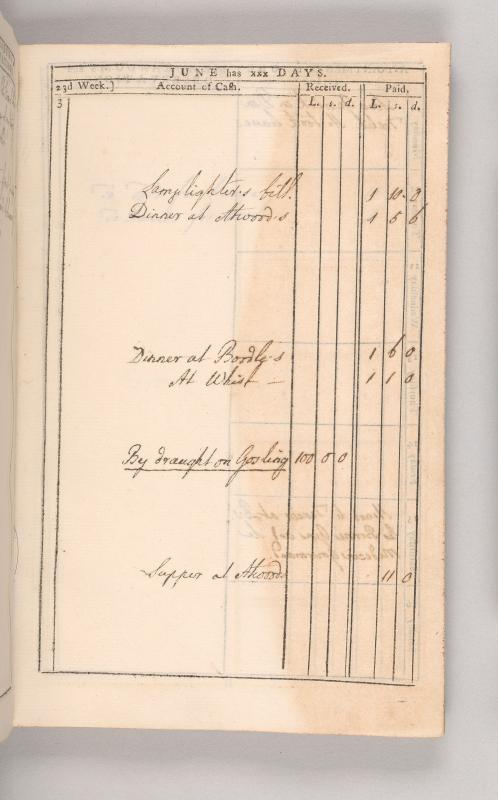 JUNE has xxx DAYS.
23d Week.) Account of Cash. Received. Paid,
L. s. d. L. s. d.
3
Lamplighter's bill. 1 10 0
Dinner at Atwood's 1 5 6
Dinner at Bordly's 1 6 0
At Whist — 1 1 0
By draught on Gosling 100 0 0
Supper at Atwoods 11 0